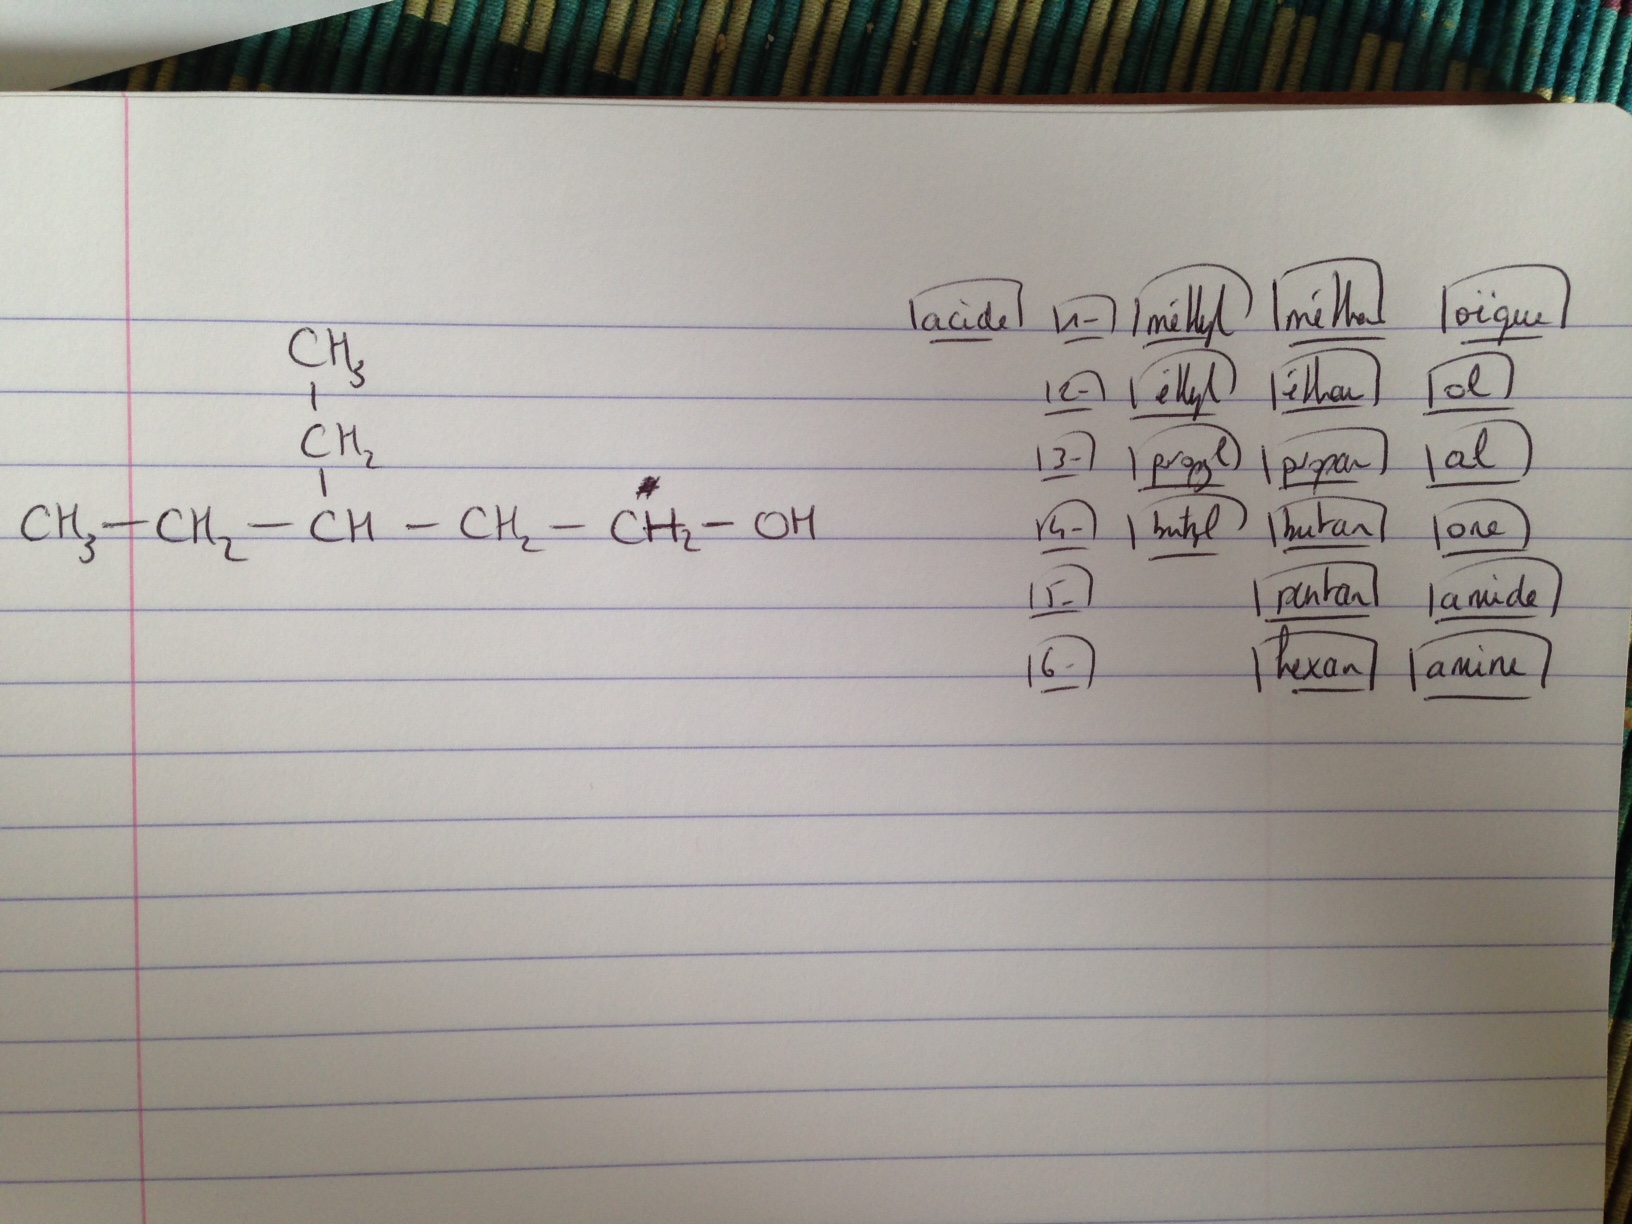 CH₃
CH₂
CH₃ — CH₂ — CH — CH₂ — CH₂ — OH
acide 1- méthyl méthan oïque
2- éthyl éthan ol
3- propyl propan al
4- butyl butan one
5- pentan amide
6- hexan amine